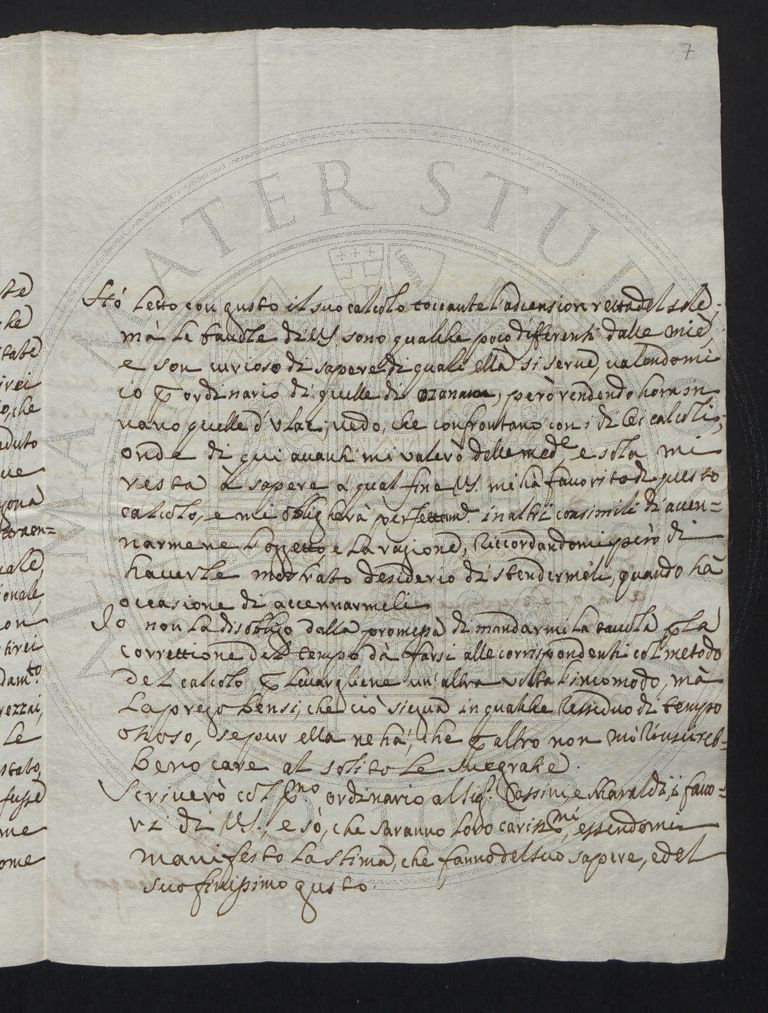 7
Hò letto con gusto il suo calcolo toccante l'adcension retta del sole,
mà le tauole di VS. sono qualche poco differenti dalle mie,
e son curioso di sapere di quali ella si serue, ualendomi
io p ordinario di quelle di Ozanam, però rendendo hora in
mano quelle d'Vlac, uedo, che confrontano con i di lei calcoli,
onde di qui auanti mi valerò delle med.e e sola mi
resta à sapere a qual fine VS. mi hà fauorito di questo
calcolo, e mi obligherà in altri consimili di accen=
narmene l'oggetto e la ragione, riccordandomi però di
hauerle mostrato desiderio di quando hà
occasione di accennarmeli
Io non la disobligo dalla promessa di mandarmi la tauola p la
correttione del tempo dà farsi alle corrispondenti col metodo
del calcolo p leuargliene un altra uolta l'incomodo, mà
la prego bensi, che ciò siegua in qualche residuo di tempo
otioso, se pur ella ne hà, che p altro non mi riusireb=
bero care al solito le sue gratie.
Scriuerò col ordinario al Sig.r Cassini, e Maraldi i fauo=
ri di VS., e sò, che saranno loro cariss.mi, essendomi
manifesto la stima, che fanno del suo sapere, e del
suo finissimo gusto.
ALMA MATER STUDIORUM